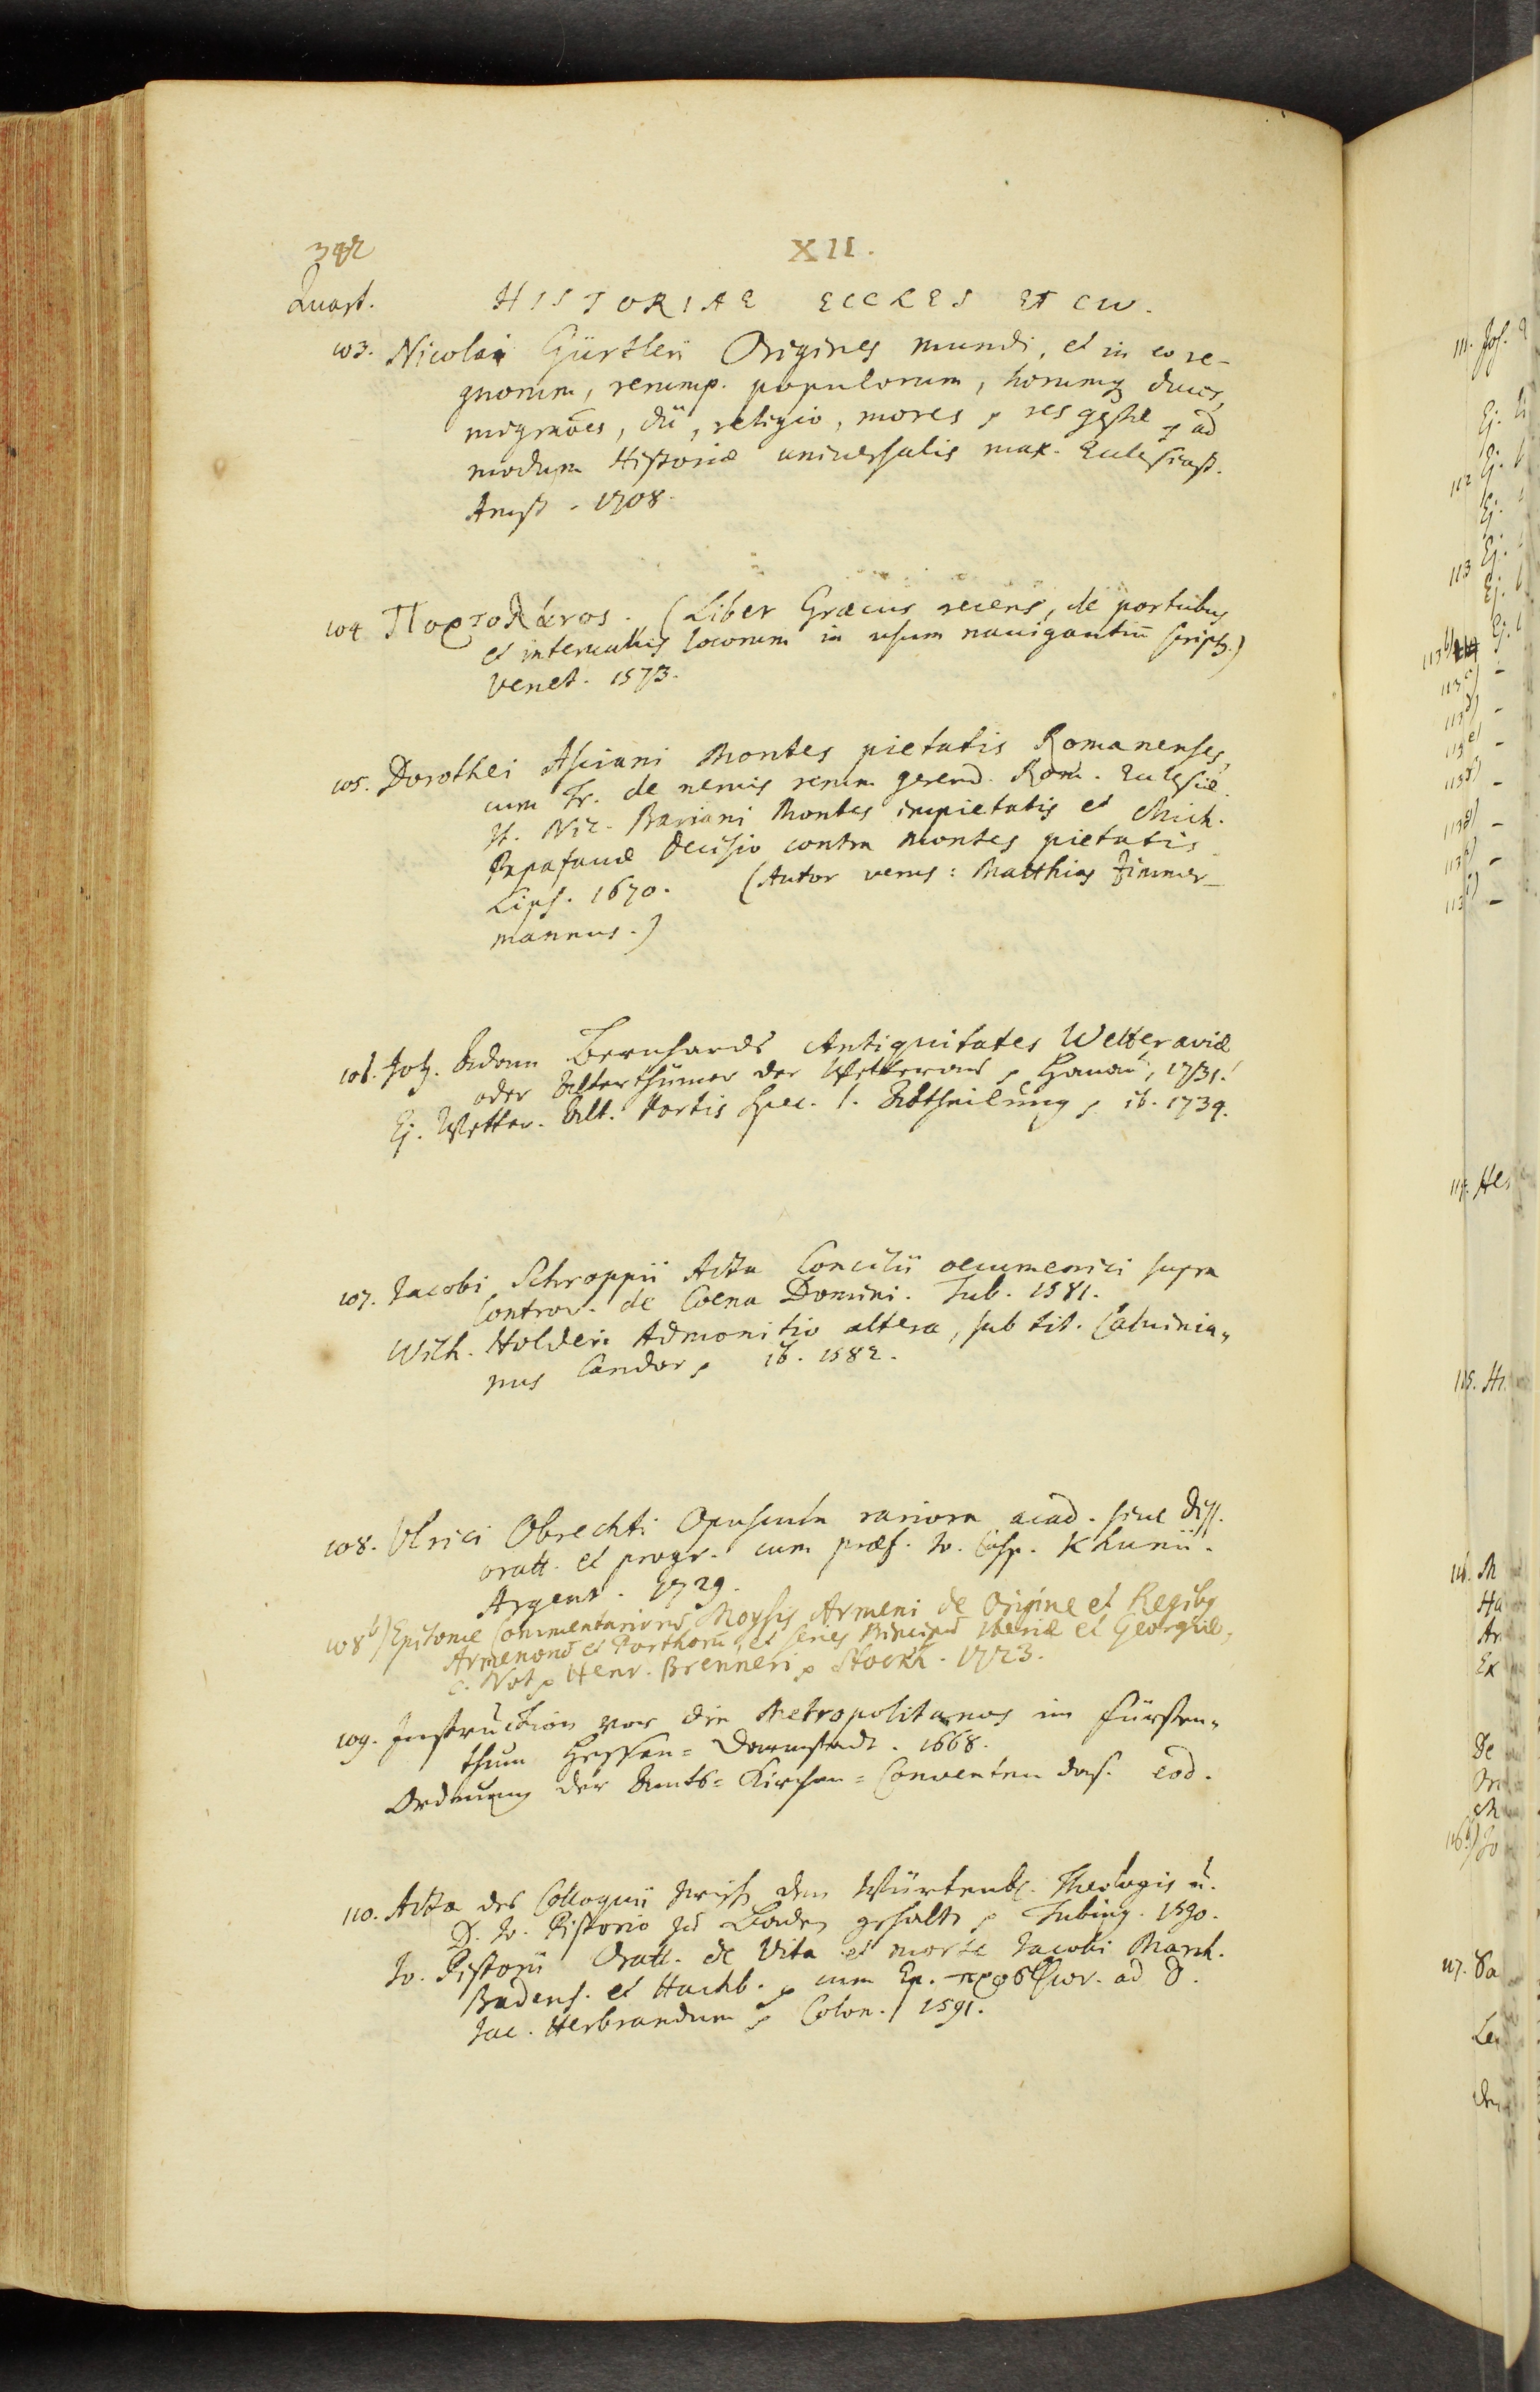 342
XII.
Quart.
HISTORIAE ECCLES ET CIV.
103. Nicolai Gürtleri Origines mundi, et in eo re-
gnorum, rerump. populorum, horumq duces,
migraões, dii, religio, mores, res gestæ, ad
modum Historiæ universalis max. Ecclesiast.
Amst. 1708.
104 Πορτολάνος. (Liber Græcus recens, de portubus
et intervallis locorum in usum navigantiu script.)
Venet. 1573.
105. Dorothei Asciani Montes pietatis Romanenses,
cum Tr. de nervis rerum gerend. Rom. Ecclesiæ.
It. Nic. Bariani Montes impietatis et Mich.
Papafavæ Decisio contra montes pietatis
Lips. 1670. (Autor verus: Matthias Zimmer-
mannus.)
106. Joh. Adam Bernhards Antiquitates Wetteraviæ
oder Alterthümer der Wetterau, Hanau, 1731.
Ej. Wetter. Alt. Partis spec. 1. Abtheilung, ib. 1739.
107. Jacobi Schroppii Acta Concilii oecumenici supra
Controv. de Coena Domini. Tub. 1581.
Wilh. Holderi Admonitio altera, sub tit. Calvinia„
nus Candor, ib. 1582.
108. Ulrici Obrechti Opuscula rariora acad. sive Diss.
oratt. et progr. cum præf. Jo. Casp. Khunii.
Argent. 1729.
108 b) Epitome Commentarioru Moysis Armeni de Origine et Regibg
Armenoru et Parthoru, et series Principu Iberiæ et Georgiæ,
c. Not. Henr. Brenneri, Stockh. 1723.
109. Instruction vor die Metropolitanos im Fürsten„
thum Hessen=Darmstadt. 1668.
Ordnung der Amts=Kirchen=Conventen das. eod.
110. Acta des Colloquii zwisch den Würtenb. Theologis u.
D. Jo. Pistorio zu Baden gehalt, Tubing. 1590.
Jo. Pistorii Oratt. de Vita et morte Jacobi March.
Badens. et Hachb., cum Ep. ad D.
Jac. Herbrandum, Colon. 1591.